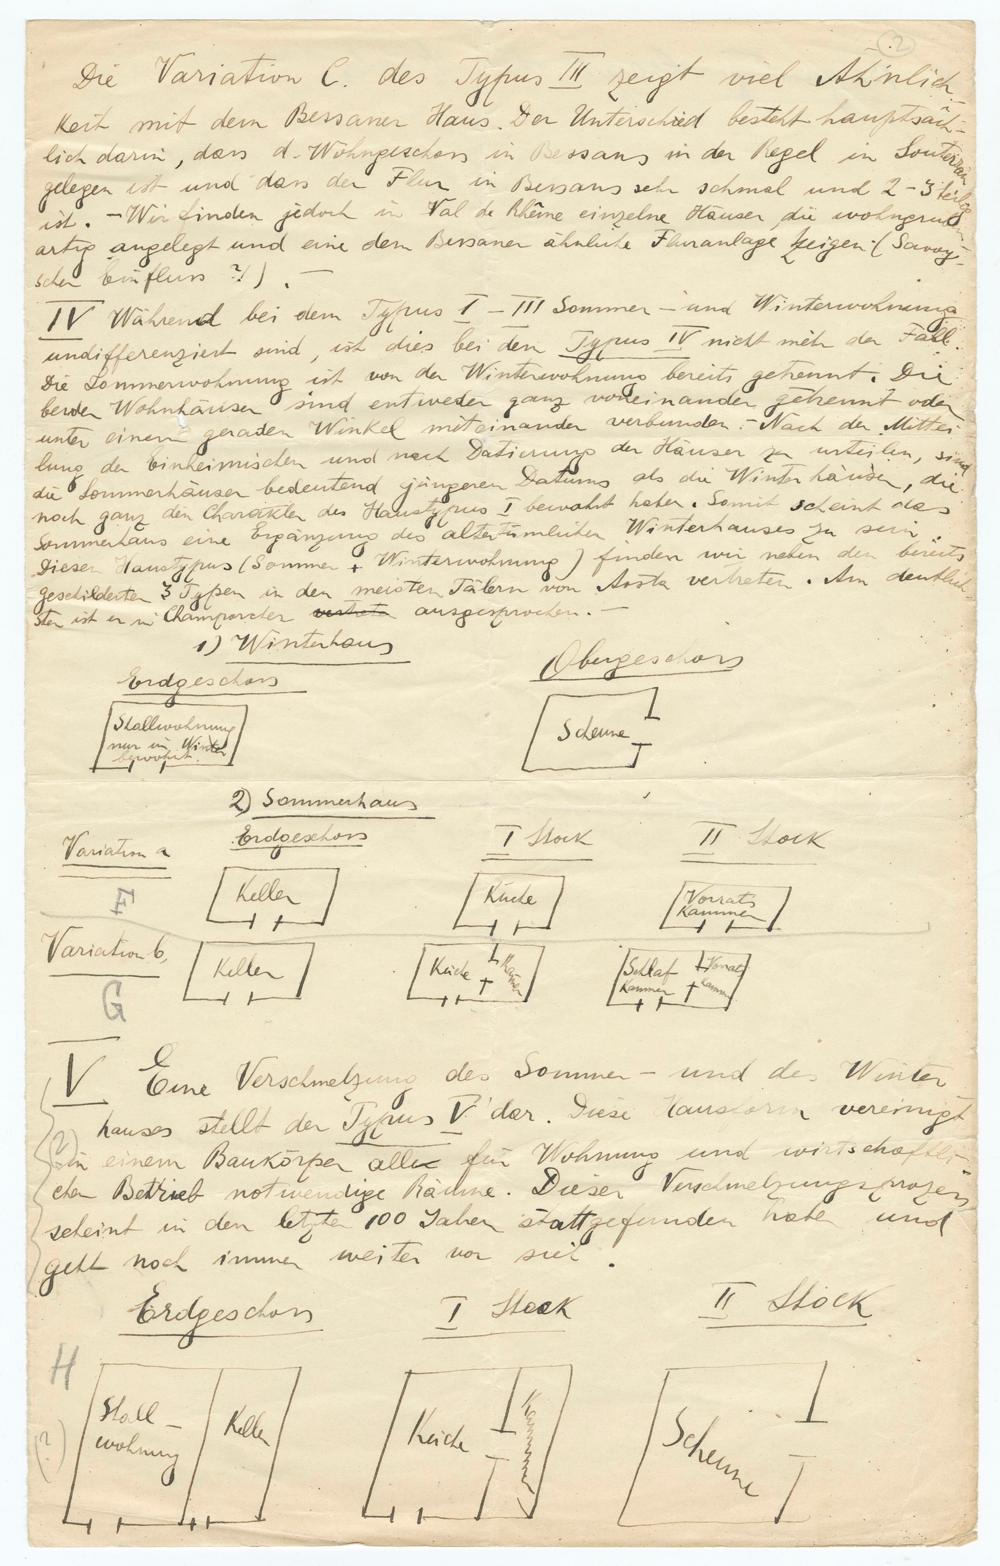 2
Die Variation C. des Typus III zeigt viel Ähnlich-
keit mit dem Bessaner Haus. Der Unterschied besteht hauptsäch-
lich darin, dass d. Wohngeschoss in Bessans in der Regel in Souterrain
gelegen ist und dass der Flur in Bessans sehr schmal und 2-3 teilig
ist. – Wir finden jedoch in Val de Rhême einzelne Häuser, die
artig angelegt und eine dem Bessaner ähnliche Fluranlage zeigen (Savoy-
scher Einfluss ?!). –
IV Während bei dem Typus I – III Sommer- und Winterwohnung
undifferenziert sind, ist dies bei den Typus IV nicht mehr der Fall.
Die Sommerwohnung ist von der Winterwohnung bereits getrennt. Die
beiden Wohnhäuser sind entweder ganz voneinander getrennt oder
unter einem geraden Winkel miteinander verbunden. – Nach der Mittei
lung der Einheimischen und nach Datierung der Häuser zu urteilen, sind
die Sommerhäuser bedeutend jüngeren Datums als die Winterhäuser, die
noch ganz den Charakter des Haustypus I bewahrt haben. Somit scheint das
Sommerhaus eine Ergänzung des altertümlichen Winterhauses zu sein.
Diesen Haustypus (Sommer + Winterwohnung) finden wir neben den bereits
geschilderten 3 Typen in den meisten Tälern von Aosta vertreten. Am deutlich-
sten ist er in Champorcher ausgesprochen. –
1) Winterhaus
Erdgeschoss
Obergeschoss
Stallwohnung
nur im Winter
bewohnt.
Scheune
2) Sommerhaus
Variation a
Erdgeschoss
I Stock
II Stock
F
Keller
Küche
Vorrats
Kammer
Variation b,
G
Keller
Küche
Kammer
Schlaf
Kammer
Vorrat
Kammer
V Eine Verschmelzung des Sommer- und des Winter
hauses stellt der Typus V dar. Diese Hausform vereinigt
(?)
in einem Baukörper alle für Wohnung und wirtschaftli-
chen Betrieb notwendige Räume. Dieser Verschmelzungsprozess
scheint in den letzten 100 Jahren stattgefunden haben und
geht noch immer weiter vor sich.
Erdgeschoss
I Stock
II Stock
H
(?)
Stall-
wohnung
Keller
Küche
Kammer
Scheune